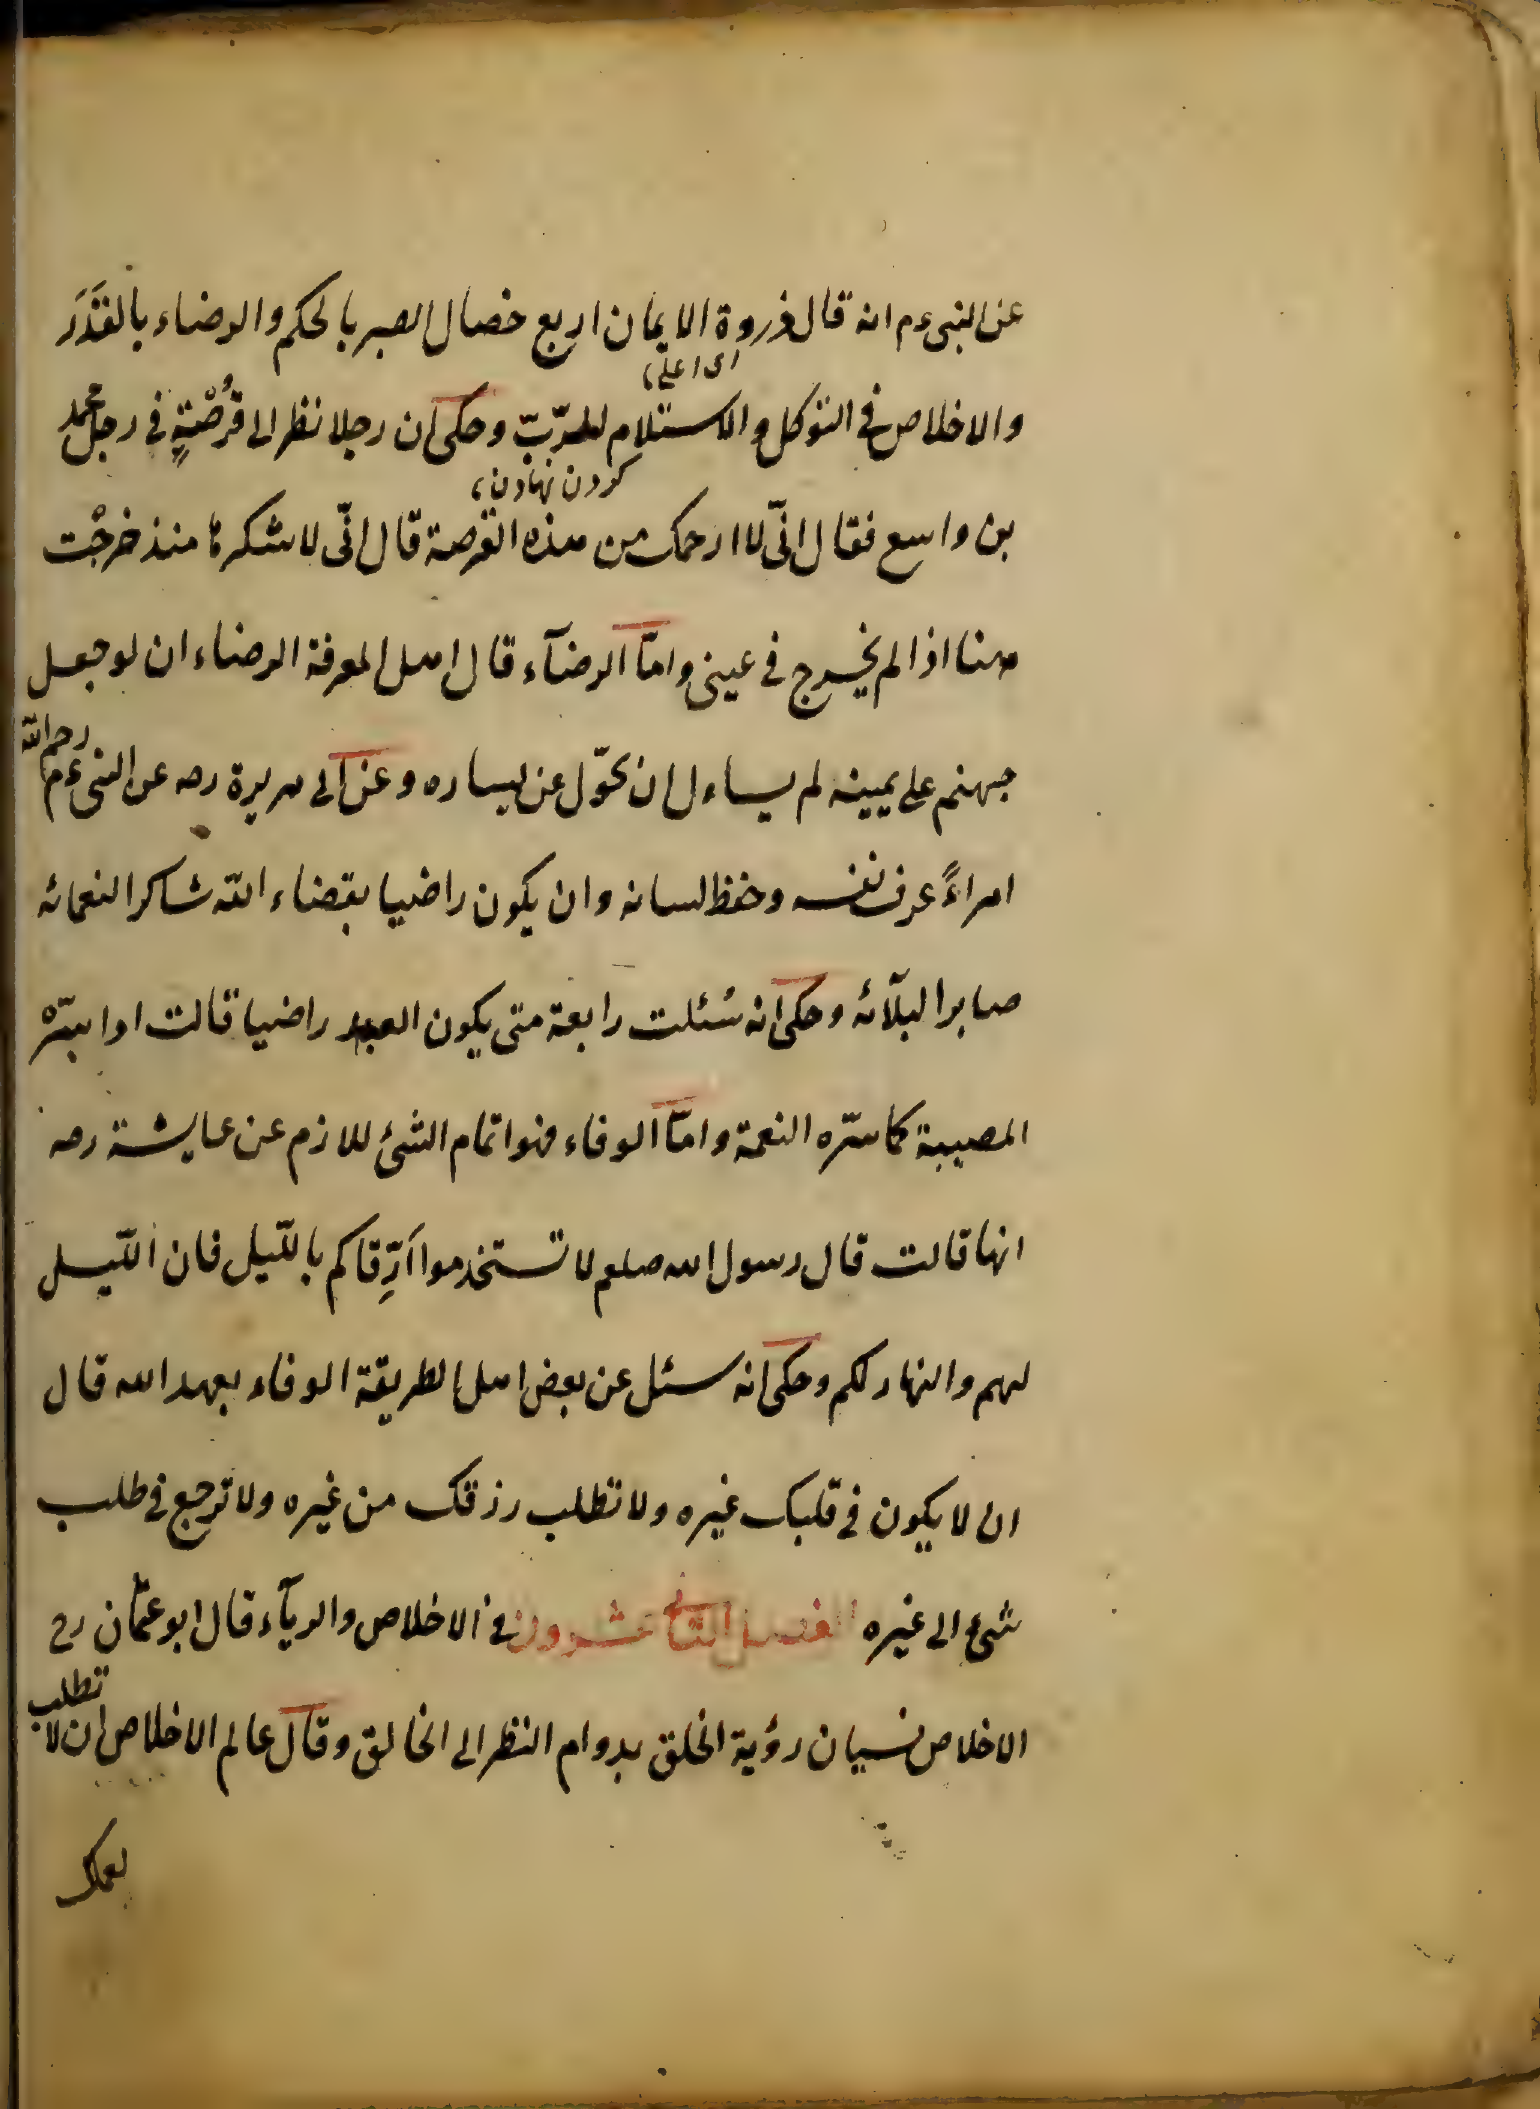 عن النبى ءم انه قال ذروة الايمان اربع خصال الصبر بالحكم والرضاء بالقَدَرَ
اى اعلى
والاخلاص فى التوكل والاستلام للرّبّ وحكى ان رجلا نظر الى قُرْصَةٍ فى رجل محمد
كردن نهادن
بن واسع فقال انّى لا ارحمك من هذه القرصة قال انّى لاشكرها منذ خرجْت
ههنا اذا لم يخرج فى عينى وامّا الرضآء قال اهل المعرفة الرضاء ان لو جعل
جهنم على يمينه لم يساءل ان تحوّل عن يساره وعن ابى هريرة رصه عن النبى ءم رحم الله
امراءً عرف نفسه وحفظ لسانه وان يكون راضيا بقضاء الله شاكرا لنعمائه
صابرا لبلآئه وحكى انه سُئلت رابعة متى يكون العبد راضيا قالت اذا سرّه
المصيبة كما سرّه النعمة وامّا الوفاء فهو اتمام الشئ للازم عن عايشة رصه
انها قالت قال رسول الله صلعم لا تستخدموا اَرِّقاكم بالليّل فان اللّيل
لهم والنهار لكم وحكى انه سئل عن بعض اهل الطريقة الوفاء بعهد الله قال
ان لا يكون فى قلبك غيره ولا تطلب رزقك من غيره ولا ترجع فى طلب
شئ الى غيره الفصل الثانى عشرون فى الاخلاص والريآء قال ابو عثمان رح
الاخلاص نسيان رؤية الخلق بدوام النظر الى الخالق وقال عالم الاخلاص ان لا تطلب
لعملك